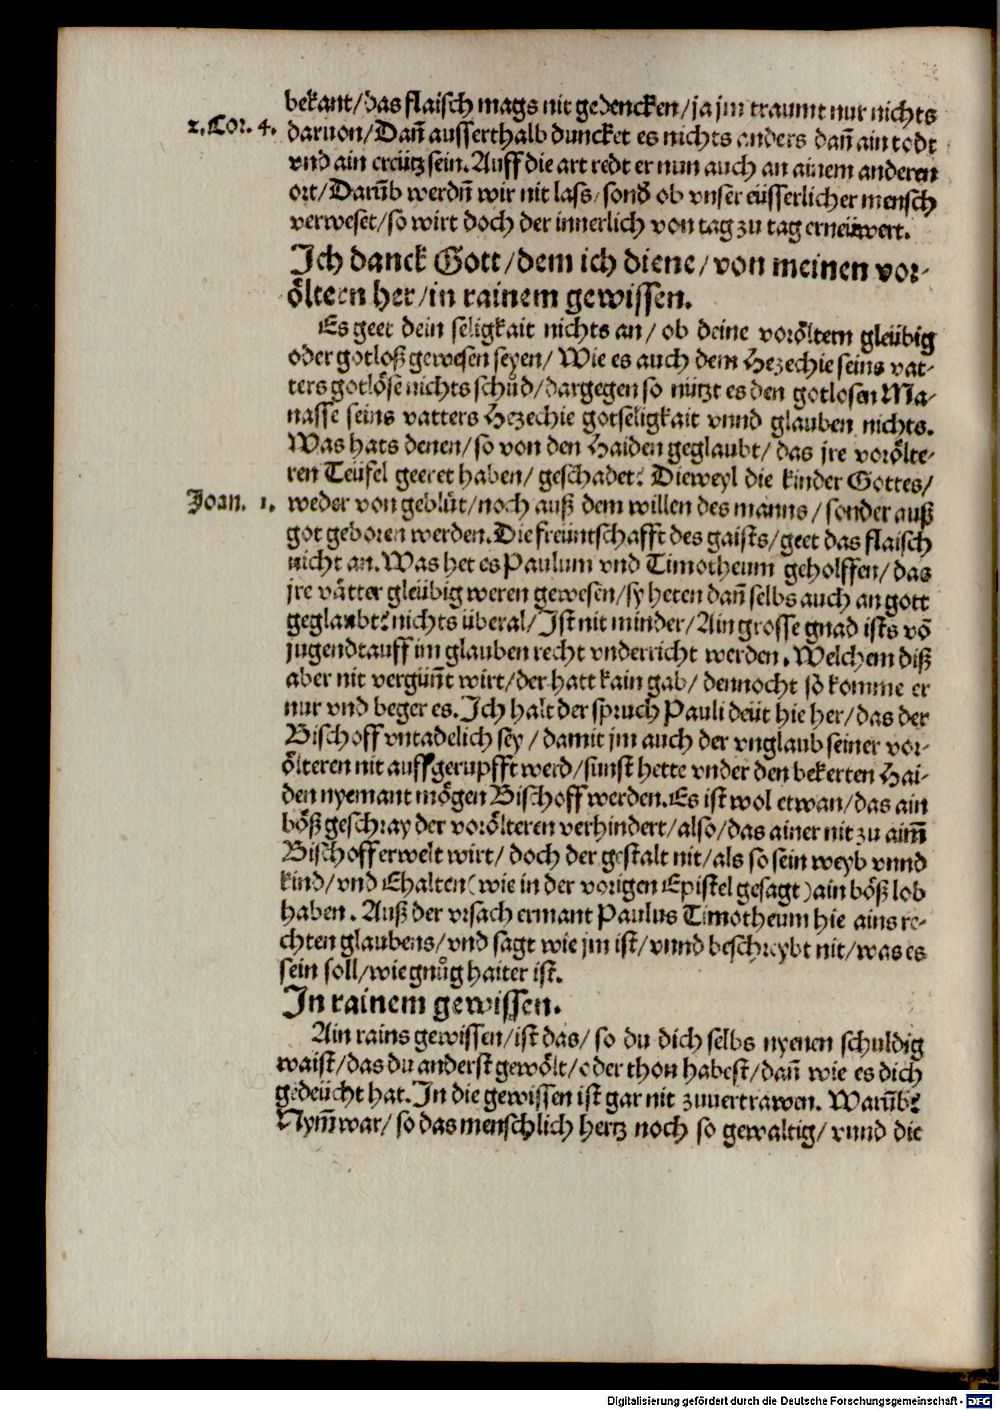 bekant/das flaisch mags nit gedencken/ja jm traumt nur nichts
2. Cor. 4.
daruon/Dañ ausserthalb duncket es nichts anders dañ ain todt
vnd ain creütz sein. Auff die art redt er nun auch an ainem anderen
ort/Darũb werdñ wir nit lass/sonđ ob vnser eüsserlicher mensch
verweset/so wirt doch der innerlich von tag zu tag erneüwert.
Ich danck Gott/dem ich diene/von meinen vor-
öltern her/in rainem gewissen.
Es geet dein seligkait nichts an/ ob deine voröltern gleübig
oder gotloß gewesen seyen/ Wie es auch dem Hezechie seins vat-
ters gotlöse nichts schůd/dargegen so nützt es den gotlosen Ma-
nasse seins vatters Hezechie gotseligkait vnnd glauben nichts.
Was hats denen/so von den Haiden geglaubt/ das jre vorölte-
ren Teüfel geeret haben/ geschadet? Dieweyl die kinder Gottes/
Joan. 1.
weder von geblüt/noch auß dem willen des manns/sonder auß
got geboren werden. Die freüntschafft des gaists/geet das flaisch
nicht an. Was het es Paulum vnd Timotheum geholffen/das
jre vätter gleübig weren gewesen/sy heten dañ selbs auch an gott
geglaubt? nichts überal/Ist nit minder/Ain grosse gnad ists võ
jugendt auff im glauben recht vnderricht werden. Welchem diß
aber nit vergüñt wirt/der hatt kain gab/ dennocht so komme er
nur vnd beger es. Ich halt der spruch Pauli deüt hie her/das der
Bischoff vntadelich sey/damit jm auch der vnglaub seiner vor-
ölteren nit auffgerupfft werd/sunst hette vnder den bekerten Hai-
den nyemant mögen Bischoff werden. Es ist wol etwan/das ain
böß geschray der vorölteren verhindert/also/das ainer nit zu aim̃
Bischoff erwelt wirt/ doch der gestalt nit/als so sein weyb vnnd
kind/vnd Ehalten (wie in der vorigen Epistel gesagt) ain böß lob
haben. Auß der vrsach ermant Paulus Timotheum hie ains re-
chten glaubens/vnd sagt wie jm ist/vnnd beschreybt nit/was es
sein soll/wie gnůg haiter ist.
In rainem gewissen.
Ain rains gewissen/ist das/ so du dich selbs nyenen schuldig
waist/das du anderst gewölt/oder thon habest/dañ wie es dich
gedeücht hat. In die gewissen ist gar nit zuuertrawen. Warũb?
Nym̃ war/ so das menschlich hertz noch so gewaltig/vnnd die
Digitalisierung gefördert durch die Deutsche Forschungsgemeinschaft - DFG